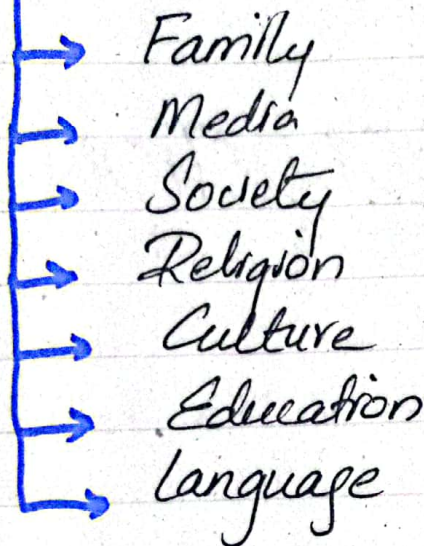 Family
Media
Society
Religion
Culture
Education
language